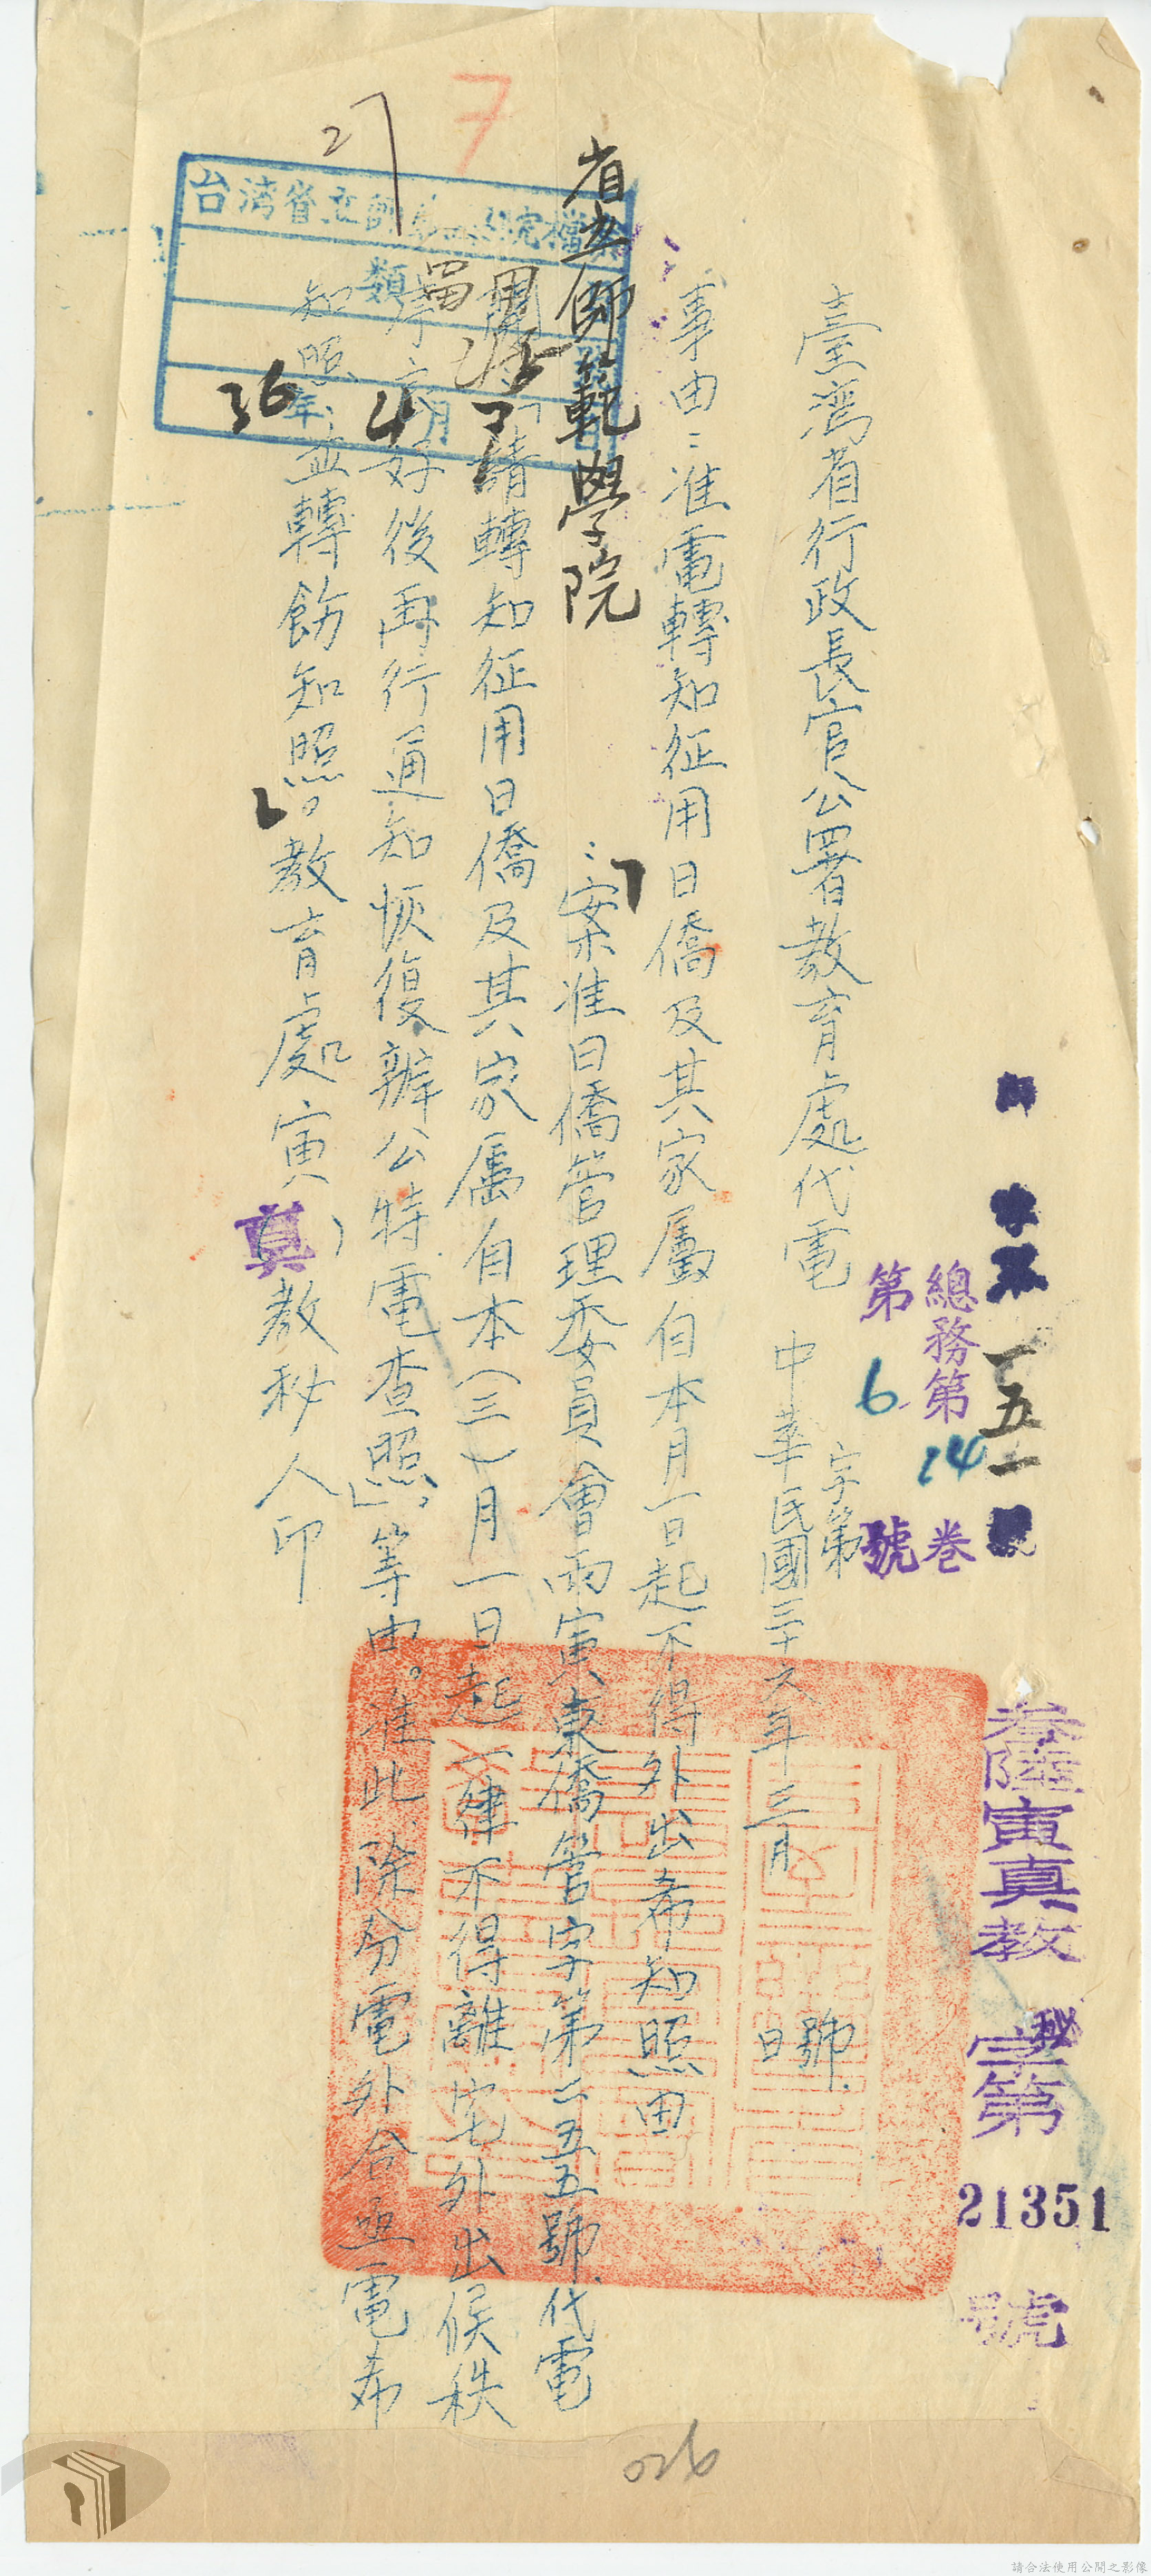 叁陸寅真教秘字第21351號
一五一號
總務第14卷
第6號
臺灣省行政長官公署教育處代電
字第 號
中華民國三十六年三月 日
事由：准電轉知征用日僑及其家屬自本月一日起不得外出希知照由
省立師範學院
：案准日僑管理委員會丙寅東僑管字第二五五號代電
開：「請轉知征用日僑及其家屬自本（三）月一日起一律不得離宅外出候秩
序良好後再行通知恢復辦公特電查照」等由。准此，除分電外合亟電希
知照，並轉飭知照。教育處寅（真）教秘人印
台灣省立師範學院檔案
類
36年4月7日
27
7
026
請合法使用公開之影像